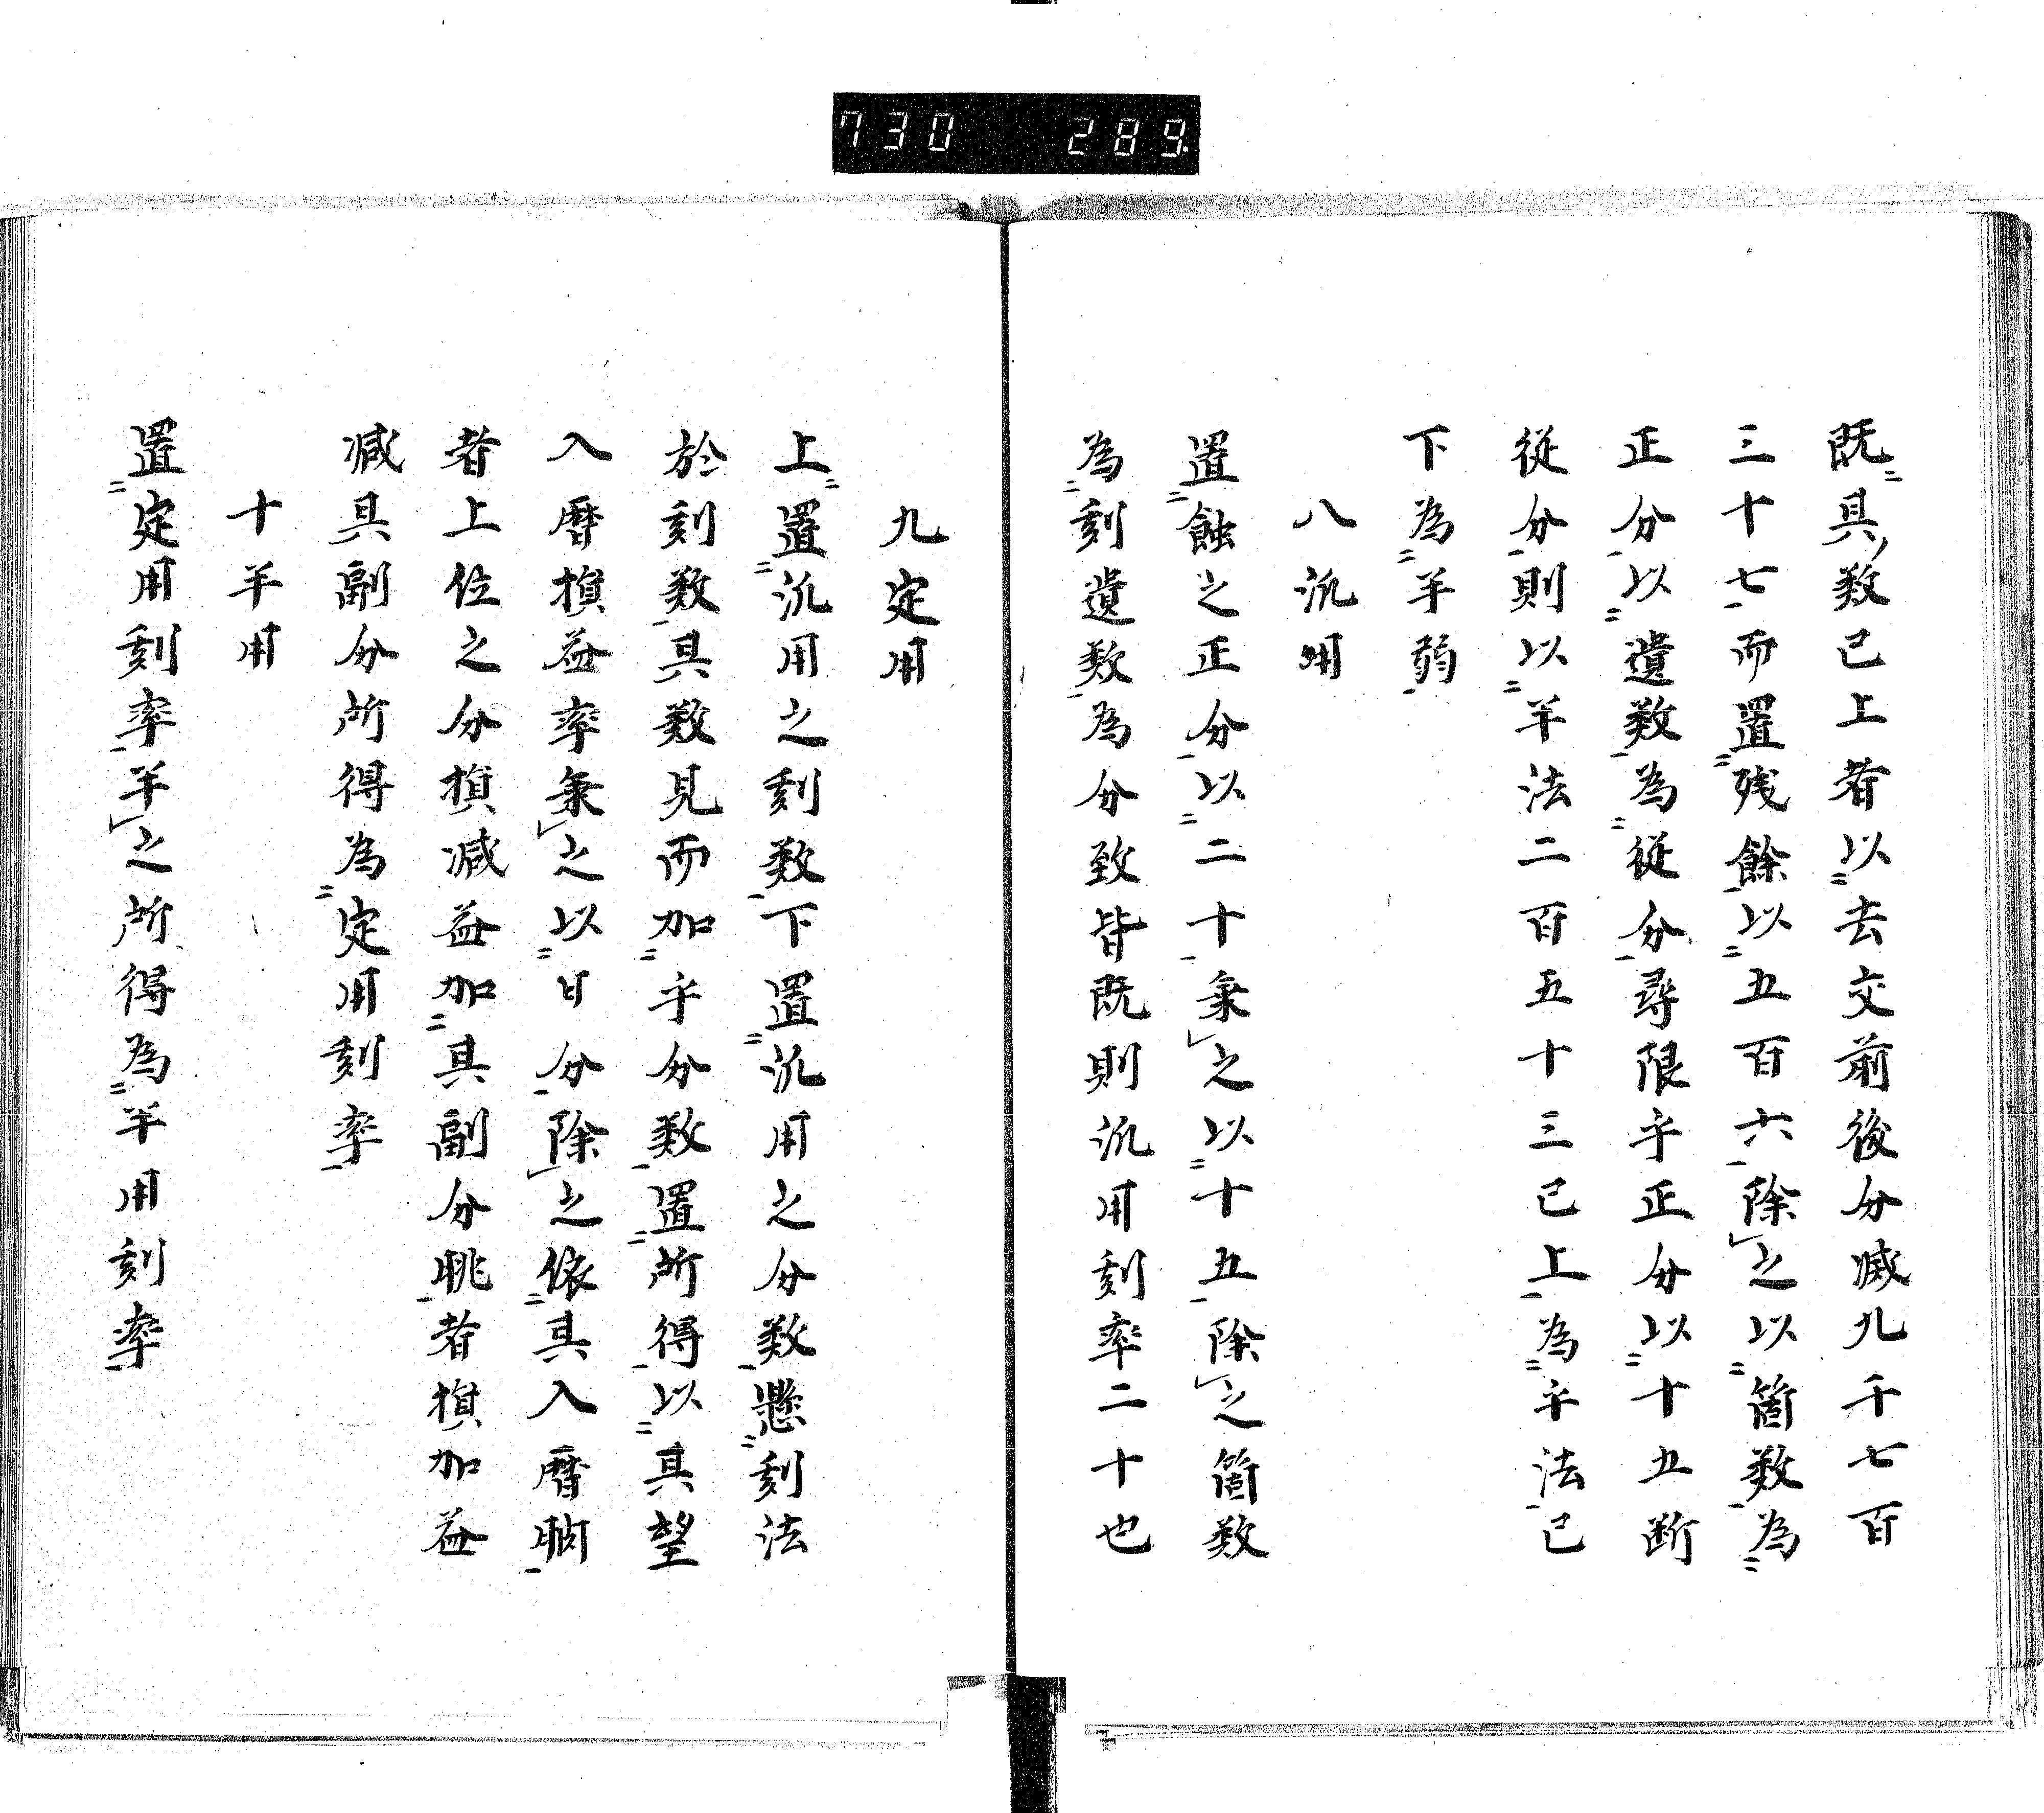 730 289
既具数已上者以去交前後分減九千七百
三十七而置残餘以五百六除之以箇数為
正分以遺数為従分尋限乎正分以十五断
従分則以半法二百五十三已上為半法已
下為半弱
八汎用
置蝕之正分以二十乗之以十五除之箇数
為刻遺数為分致皆既則汎用刻率二十也
九定用
上置汎用之刻数下置汎用之分数懸刻法
於刻数具数見而加乎分数置所得以其望
入暦損益率乗之以日分除之依其入暦朒
者上位之分損減益加其副分朓者損加益
減其副分所得為定用刻率
十半用
置定用刻率半之所得為半用刻率